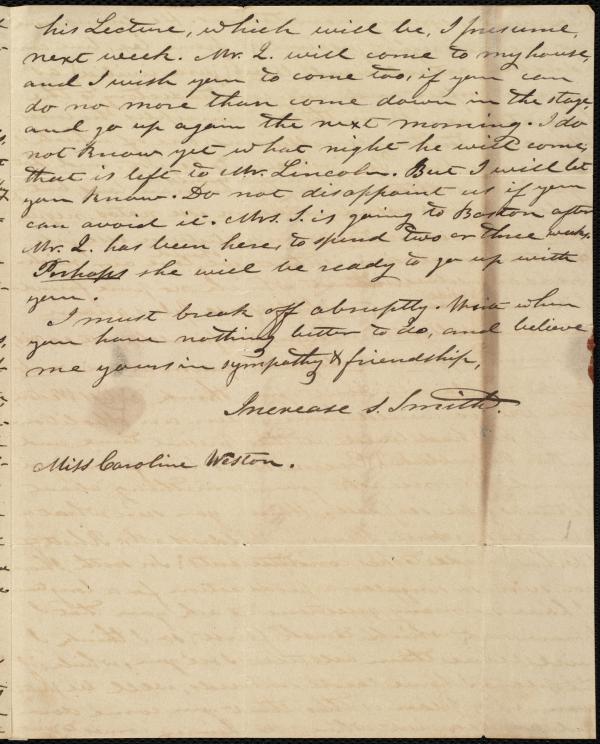 his Lecture, which will be, I presume,
next week. Mr. Q. will come to my house,
and I wish you to come too, if you can
do no more than come down in the stage
and go up again the next morning. I do
not know yet what night he will come;
that is left to Mr. Lincoln. But I will let
you know. Do not disappoint us if you
can avoid it. Mrs. S. is going to Boston after
Mr. Q. has been here, to spend two or three weeks.
Perhaps she will be ready to go up with
you.
I must break off abruptly. Write when
you have nothing better to do, and believe
me yours in sympathy & friendship,
Increase S. Smith.
Miss Caroline Weston.